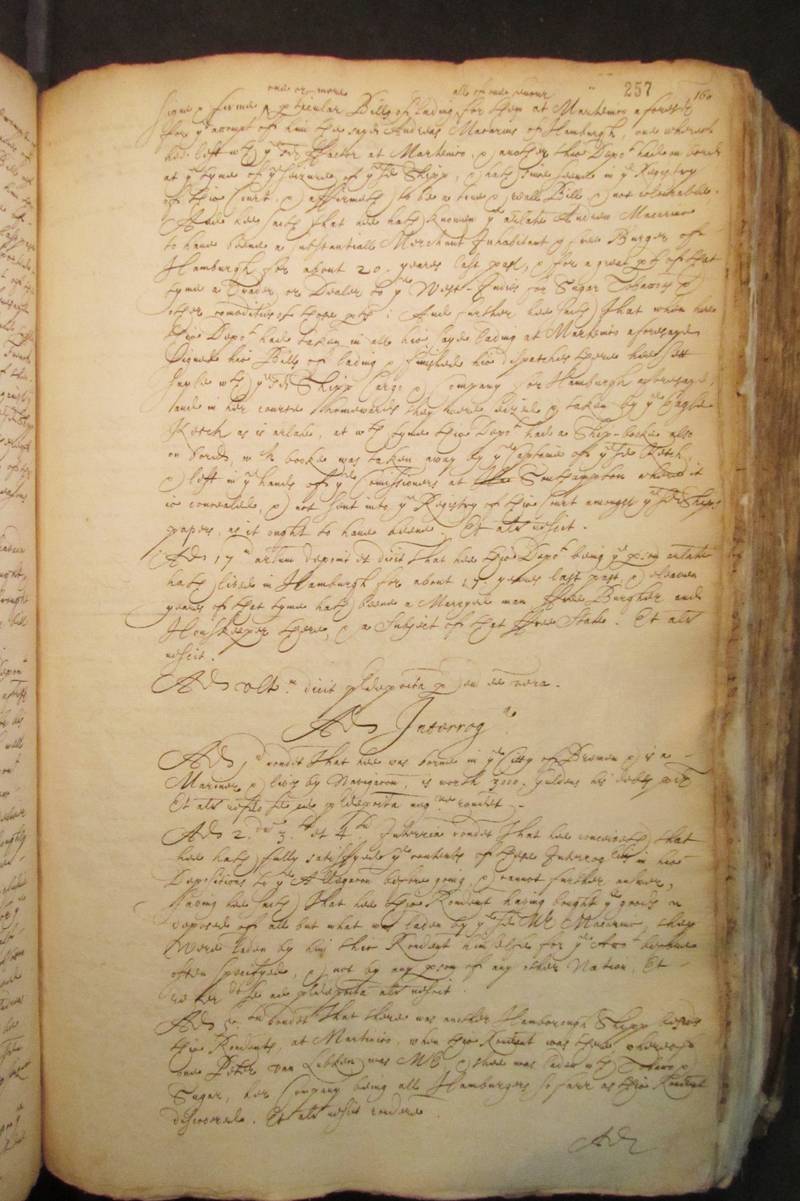 257 160
one or more all of one tenour
signe & firme particular Bills of lading for them at Martenico aforesd
for ye accompt of him the sayd Andreas Macarius of Hamburgh, one whereof
hee left wth ye sd Factor at Martenico, & another this Depot had on board
at ye tyme of ye seizure of ye sd Shipp, & hath since seene in ye Registry
of this Court, & affirmeth to be a true & reall Bill & not colourable.
And hee saith that hee hath knowne ye arlate Andrew
to have beene a substantiall Merchant Inhabitant & free Burger of
Hamburgh for about 20. yeares last past, & for a great pt of that
tyme a Trader or Dealer to ye West-Indies for Sugar Tobaccos &
other comodities of those pts: And further hee saith That when hee
this Depot had taken in all his sayd lading at Martenico aforesayd
Signed his Bills of lading & finished his dispatches there hee sett
Sayle wth ye sd Shipp Cargo & Company for Hamburgh aforesayd,
and in her course thomewards they were seized & taken by ye
Ketch as is arlate, at wch tyme this Depot had a Ship-booke also
on board wch booke was taken away by ye Captaine of ye sd Ketch
& left in ye hands of ye Comissioners at Southampton where it
is concealed, & not sent into ye Registry of this Court amongst ye sd Ships
papers, as it ought to have beene. Et alr nescit.
Ad 17m artum deponit et dicit That hee this Depot being ye pson arlate
hath lived in Hamburgh for about 17. yeares last past & eleaven
yeares of that tyme hath beene a Marryed man ffree Burgher and
Houskeeper there, & a Subject of that ffree State. Et alr
nescit.
Ad Ult.m dicit pdeposita p eu ee vera.
Ad Interrog.ria
Ad p.m rendet That hee was borne in ye Citty of Bremen & is a
Mariner & lives by Navigacon, is worth 3000. Guldens his debts paid
Et alr refdo se ad pdeposita neg.ve rendet.
Ad 2.dum 3.tiu et 4.tum Interria rendet That hee conceiveth that
hee hath fully satisfyed ye contents of these Interries in his
Depositions to ye Allegacon before going, & cannot further answer,
saving hee saith That hee this Rendent having bought ye goods
deposed of all but what was laden by ye sd Mr Macarius, they
were laden by him this Rendent himselfe for ye Acct before
often specifyed, & not by any pson of any other Nation. Et
se ad pdeposita alr nescit.
Ad 5.tum rendet That there was another Hamborough Shipp besides
this Rendents, at Martinico, when this Rendent was there, whereof
one Peter van Lubken was Mr & shee was laden wth Tobacco &
Sugar, her Company being all Hamburgers so farr as this Rendent
discovered. Et alr nescit rendere.
Ad